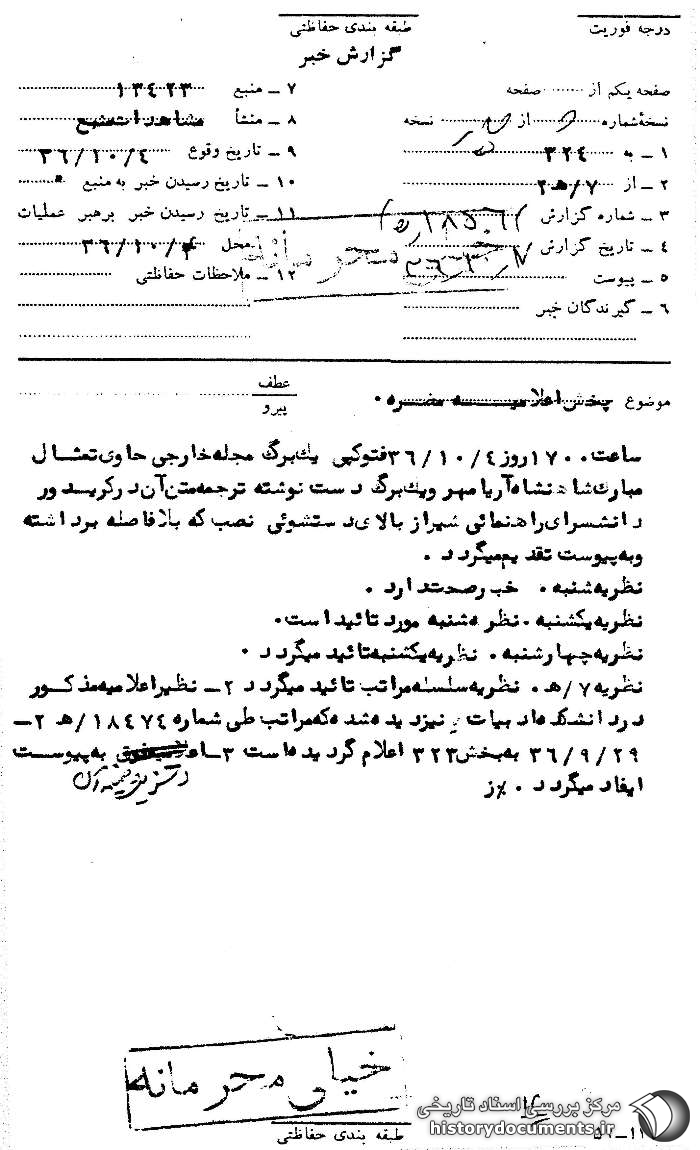 درجه فوریت
طبقه بندی حفاظتی
گزارش خبر
صفحه یکم از صفحه
نسخه شماره از نسخه
۱ – به ۳۲۴
۲ – از ۷/ه۲
۳ – شماره گزارش
۴ – تاریخ گزارش
۵ – پیوست
۶ – گیرندگان خبر
۷ – منبع ۱۳۴۲۳
۸ – منشأ مشاهدات منبع
۹ – تاریخ وقوع ۳۶/۱۰/۴
۱۰ – تاریخ رسیدن خبر به منبع
۱۱ – تاریخ رسیدن خبر برهبر عملیات
محل ۳۶/۱۰/۴
۱۲ – ملاحظات حفاظتی
خیلی محرمانه
موضوع پخش اعلامیه مضره .
عطف
پیرو
ساعت ۱۷۰۰ روز ۳۶/۱۰/۴ فتوکپی یک برگ مجله خارجی حاوی تمثال
مبارک شاهنشاه آریامهر ویک برگ دست نوشته ترجمه متن آن در کریدور
دانشسرای راهنمائی شیراز بالای دستشوئی نصب که بلافاصله برداشته
وبه پیوست تقدیم میگردد .
نظریه شنبه . خبر صحت دارد .
نظریه یکشنبه . نظر ه شنبه مورد تائید است .
نظریه چهارشنبه . نظریه یکشنبه تائید میگردد .
نظریه ۷/ه . نظریه سلسله مراتب تائید میگردد ۲ – نظیر اعلامیه مذکور
در دانشکده ادبیات نیز دیده شده که مراتب طی شماره ۱۸۴۷۴/ه۲ –
۳۶/۹/۲۹ به بخش ۳۲۳ اعلام گردیده است ۳ – به پیوست
ایفاد میگردد . ز
خیلی محرمانه
طبقه بندی حفاظتی
۱۱–۵۰
مرکز بررسی اسناد تاریخی
historydocuments.ir